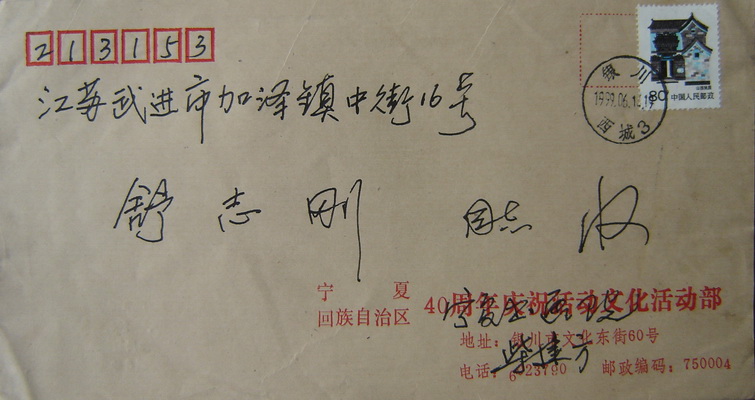 213153
80 中国人民邮政
银川
1999.06.1
西城3
江苏武进市加泽镇中街16号
舒志刚 同志 收
宁夏
回族自治区 40周年庆祝活动文化活动部
宁夏书画院
地址: 银川市文化东街60号
柴建方
电话: 6 23790 邮政编码: 750004